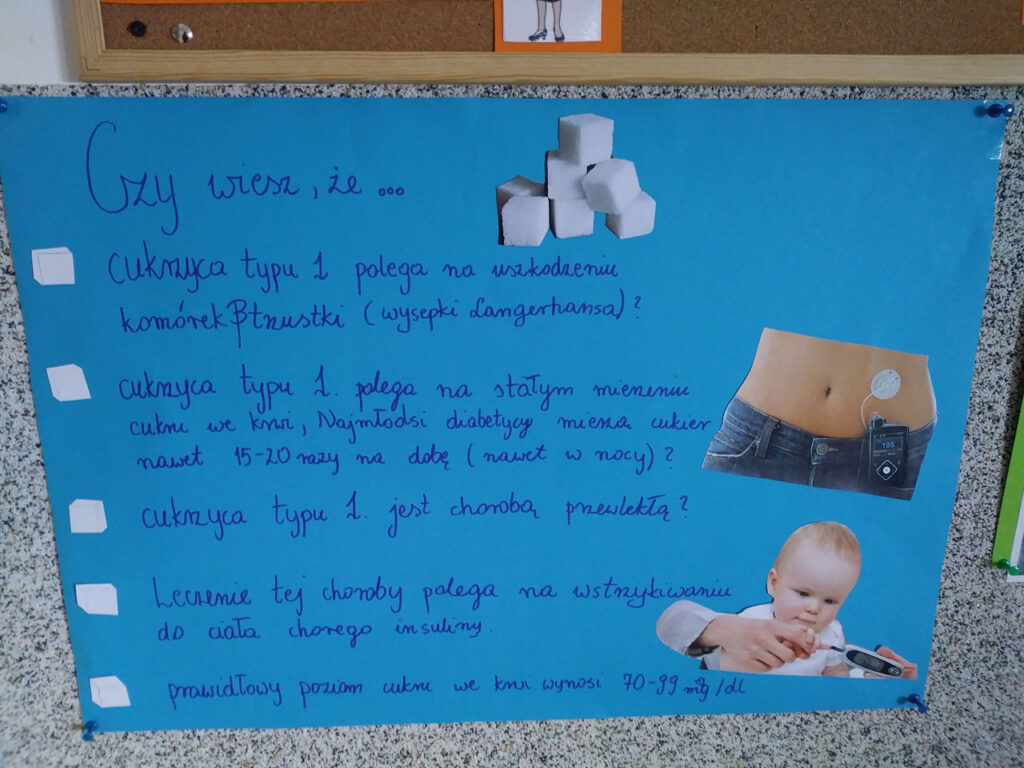 Czy wiesz, że ...
cukrzyca typu 1 polega na uszkodzeniu
komórek β trzustki (wysepki Langerhansa)?
cukrzyca typu 1. polega na stałym mierzeniu
cukru we krwi, Najmłodsi diabetycy mierzą cukier
nawet 15-20 razy na dobę (nawet w nocy)?
cukrzyca typu 1. jest chorobą przewlekłą?
Leczenie tej choroby polega na wstrzykiwaniu
do ciała chorego insuliny.
prawidłowy poziom cukru we krwi wynosi 70-99 mg/dl
105